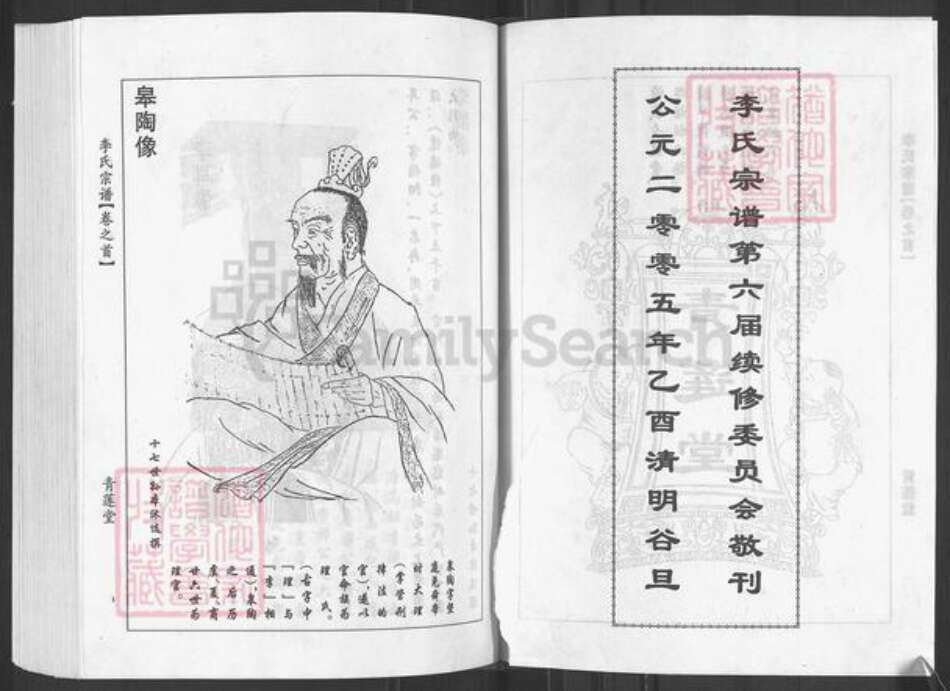 李氏宗谱第六届续修委员会敬刊
公元二零零五年乙酉清明谷旦
皋陶像
李氏宗谱【卷之首】
青莲堂
皋陶字坚
庭尧舜帝
时大理
(掌管刑
律法的
官),遂以
官命族为
理氏。
(古字中
「理」与
「李」相
通),皋陶
之后历
虞、夏、商
廿六世为
理官。
FamilySearch